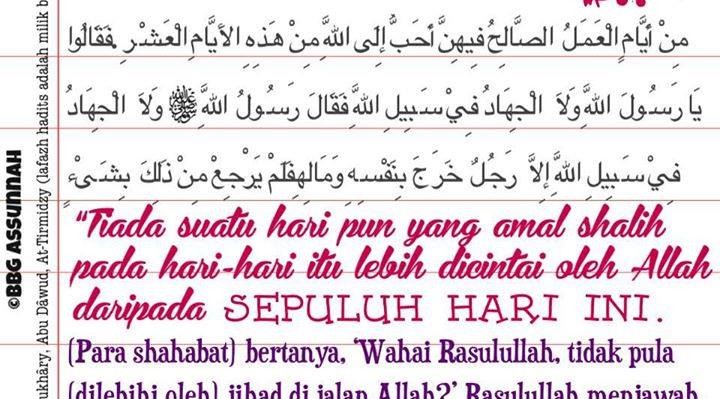 مِنْ أَيَّامٍ الْعَمَلُ الصَّالِحُ فِيهِنَّ أَحَبُّ إِلَى اللَّهِ مِنْ هَذِهِ الأَيَّامِ الْعَشْرِ. فَقَالُوا
يَا رَسُولَ اللَّهِ وَلاَ الْجِهَادُ فِيْ سَبِيلِ اللَّهِ فَقَالَ رَسُولُ اللَّهِ ﷺ وَلاَ الْجِهَادُ
فِيْ سَبِيلِ اللَّهِ إِلاَّ رَجُلٌ خَرَجَ بِنَفْسِهِ وَمَالِهِ فَلَمْ يَرْجِعْ مِنْ ذَلِكَ بِشَىْءٍ
"Tiada suatu hari pun yang amal shalih
pada hari-hari itu lebih dicintai oleh Allah
daripada SEPULUH HARI INI.
(Para shahabat) bertanya, 'Wahai Rasulullah, tidak pula
(dilebihi oleh) jihad di jalan Allah?' Rasulullah menjawab
©BBG ASSUNNAH
Abu Dâwud, At-Tirmidzy (lafazh hadits adalah milik